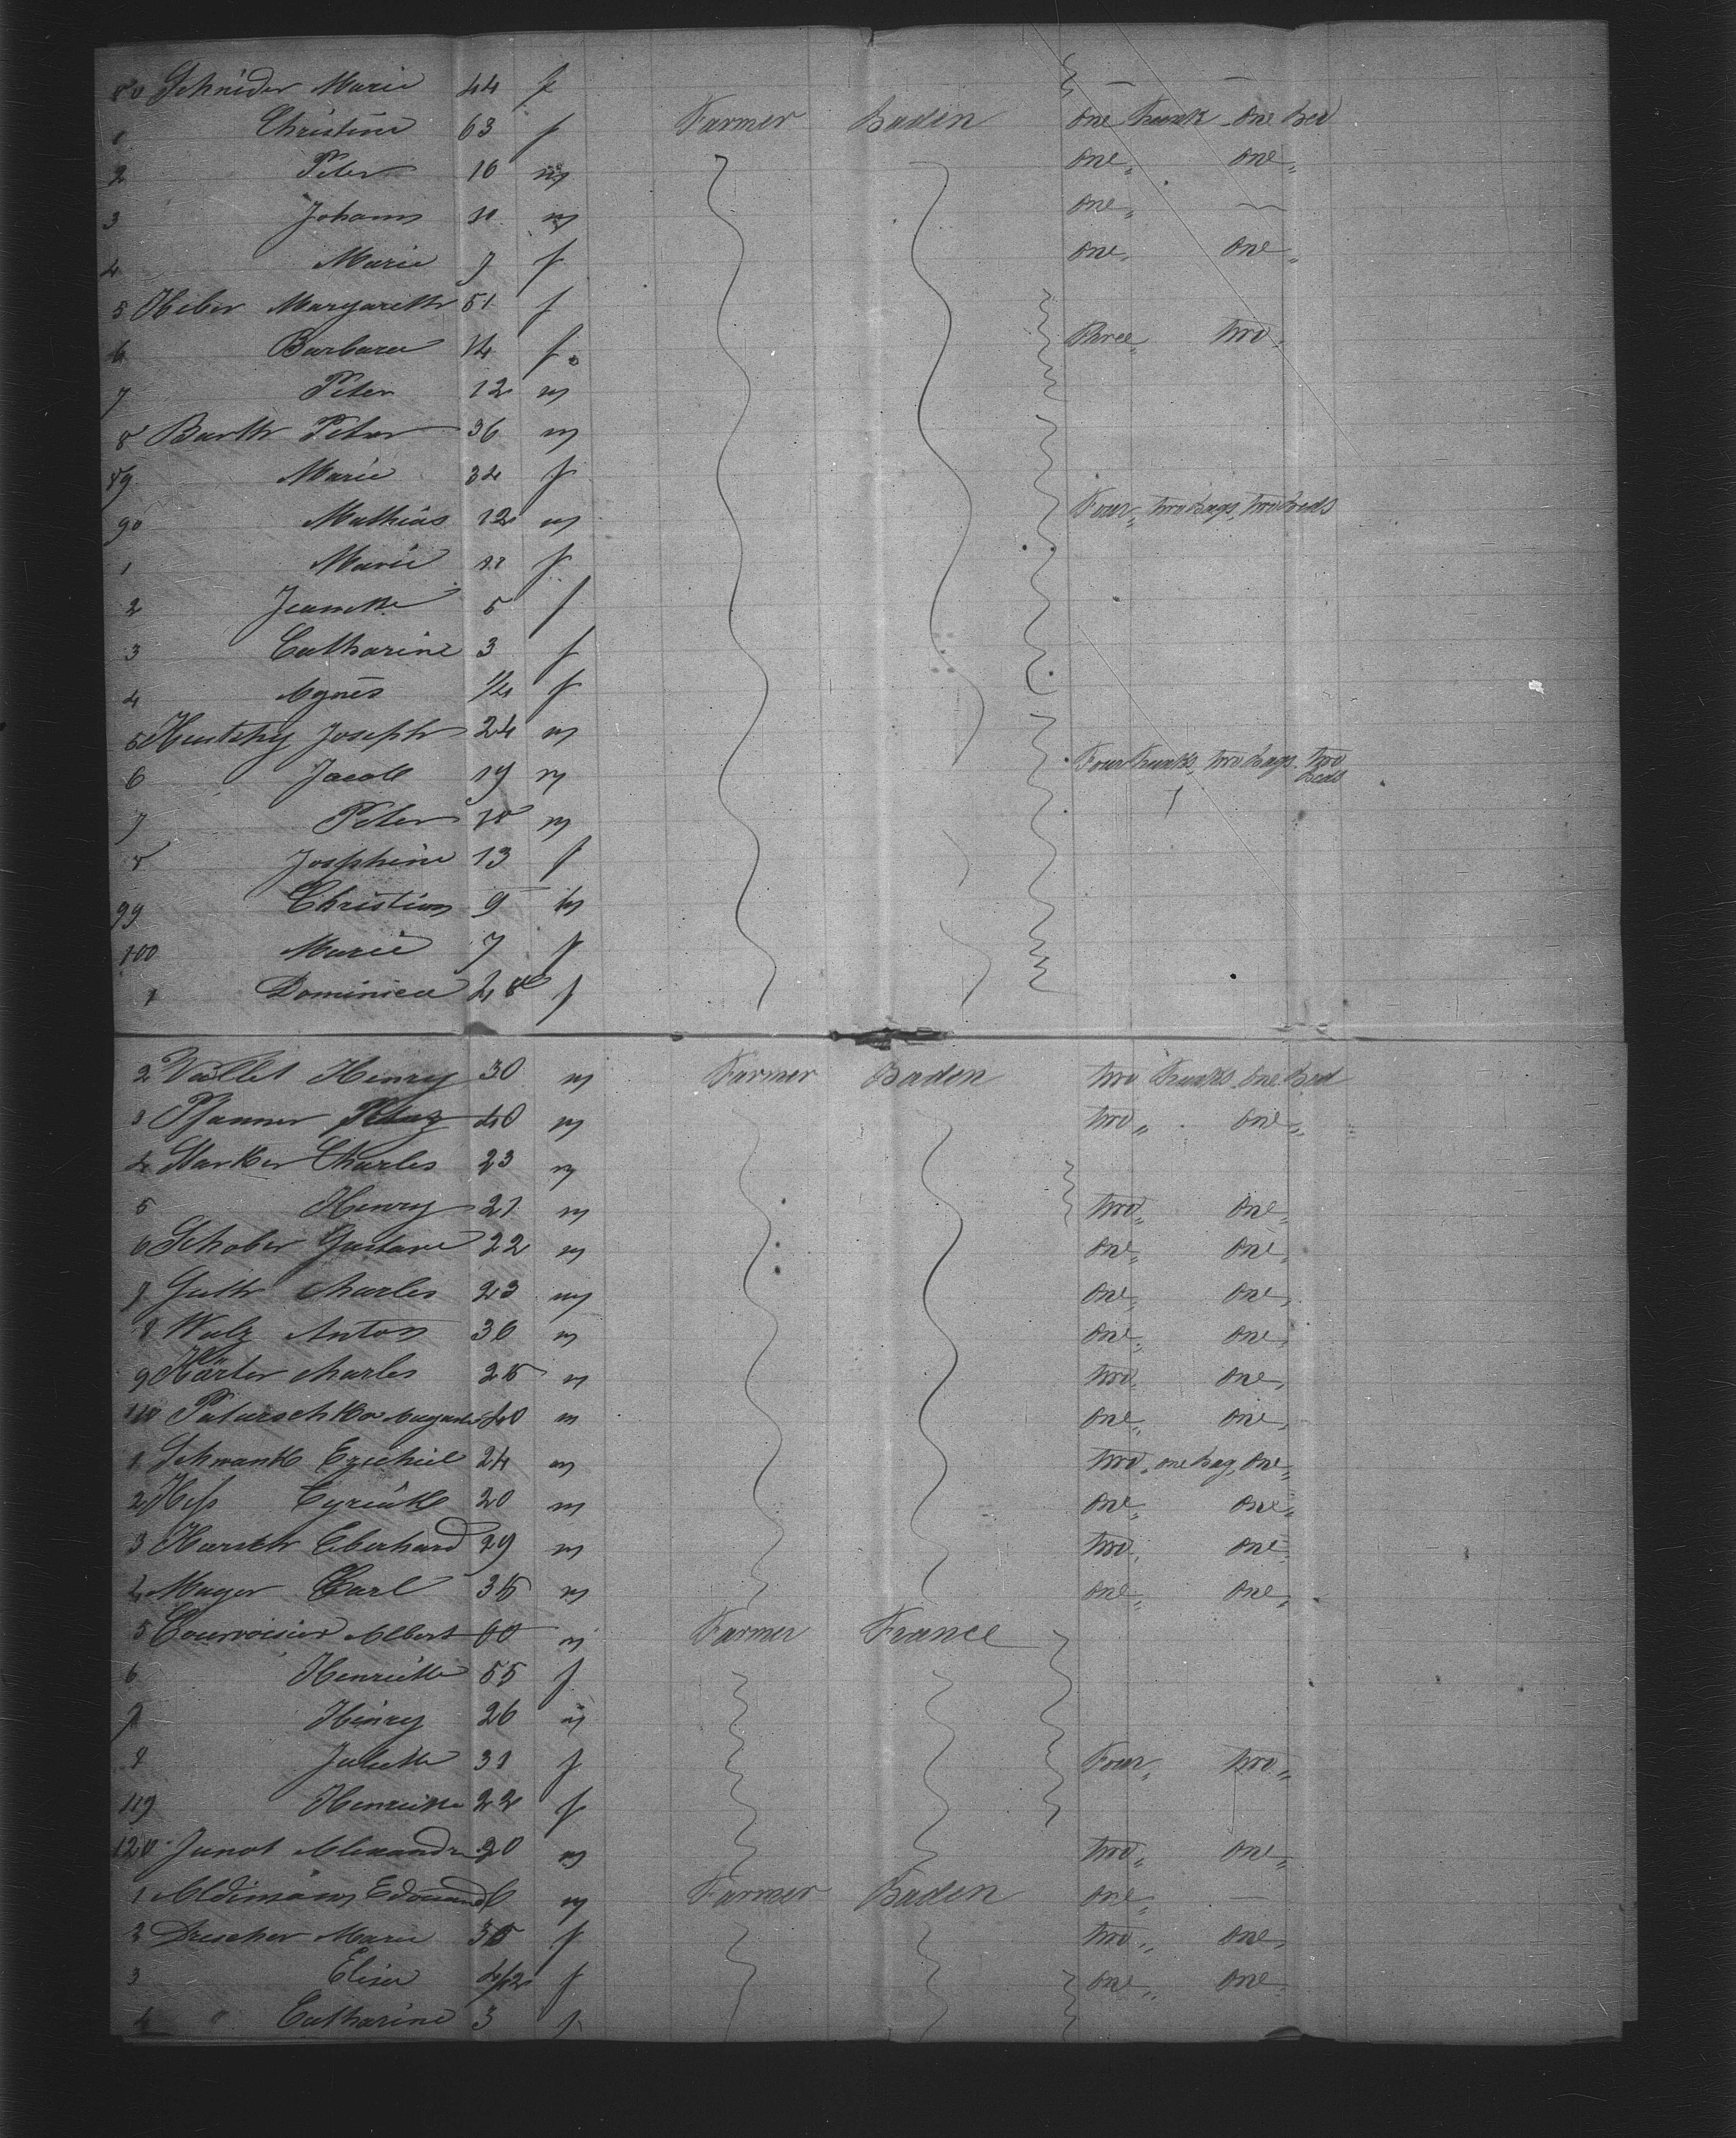 80 Schnider Marie 44 f
1 Christine 63 f Farmer Baden One Trunk One Bed
2 Peter 16 m One " One "
3 Johann 11 m One " —
4 Marie 7 f One " One "
5 Heber Margareth 51 f
6 Barbara 14 f Three " two "
7 Peter 12 m
8 Barth Peter 36 m
89 Marie 34 f
90 Mathias 12 m Four " two bags, two beds
1 Marie 11 f
2 Jeanette 5 f
3 Catharine 3 f
4 Agnes 1/4 f
5 Joseph 24 m
6 Jacob 19 m Four Trunks, two bags, two Beds
7 Peter 18 m
8 Josephine 13 f
99 Christian 9 m
100 Marie 7 f
1 Dominica 48 f
2 Vallet Henry 30 m Farmer Baden two Trunks One Bed
3 Pfanner 40 m two " One "
4 Starker Charles 23 m
5 Henry 21 m two " One "
6 Schober Gustave 22 m One " One "
7 Guth Charles 23 m One " One "
8 Walz Anton 36 m One " One "
9 Härter Charles 25 m two " One "
110 August 40 m One " One "
1 Schwank Ezechiel 24 m two " one bag, One "
2 Hess 20 m One " One "
3 Harsch Eberhard 29 m two " One "
4 Mayer Carl 35 m One " One "
5 Courvoisier Albert 60 m Farmer France
6 Henriette 55 f
7 Henry 26 m
8 Juliette 31 f Four " two "
119 Henriette 22 f
120 Junot Alexandre 20 m two " One "
1 Edouard m Farmer Baden One " —
2 Drescher Marie 35 f two " One "
3 Elisa 4/12 f One " One
4 " Catharine 3 f